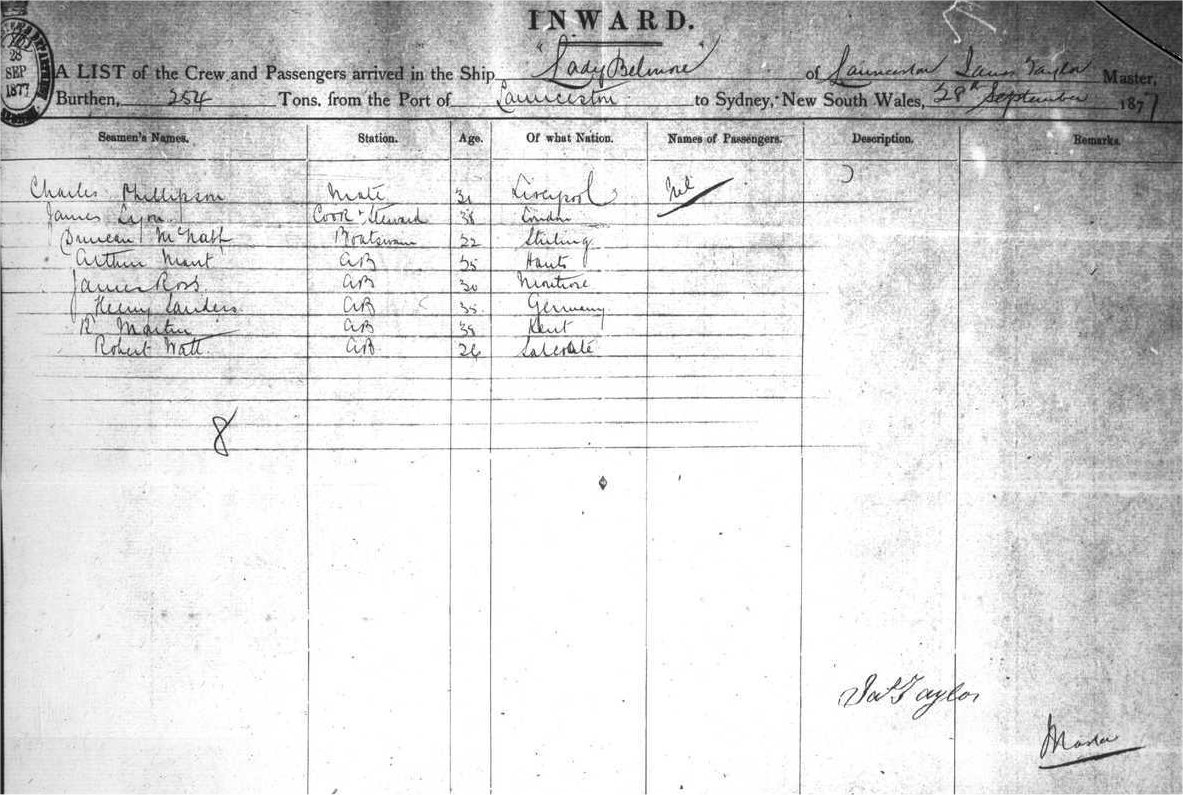 INWARD.
28
SEP
1877
A LIST of the Crew and Passengers arrived in the Ship "Lady Belmore" of Launceston James Taylor Master,
Burthen, 254 Tons, from the Port of Launceston to Sydney, New South Wales, 28th September 1877
Seamen's Names. Station. Age. Of what Nation. Names of Passengers. Description. Remarks.
Charles Phillipson Mate 31 Liverpool Nil
James Lyon Cook & Steward 38 London
Duncan Boatswain 22 Stirling
Arthur Mant AB 25 Hants
James Ross AB 30 Montrose
Henry Sanders AB 35 Germany
R Martin AB 38 Kent
Robert Watt AB
8
Jas Taylor
Master